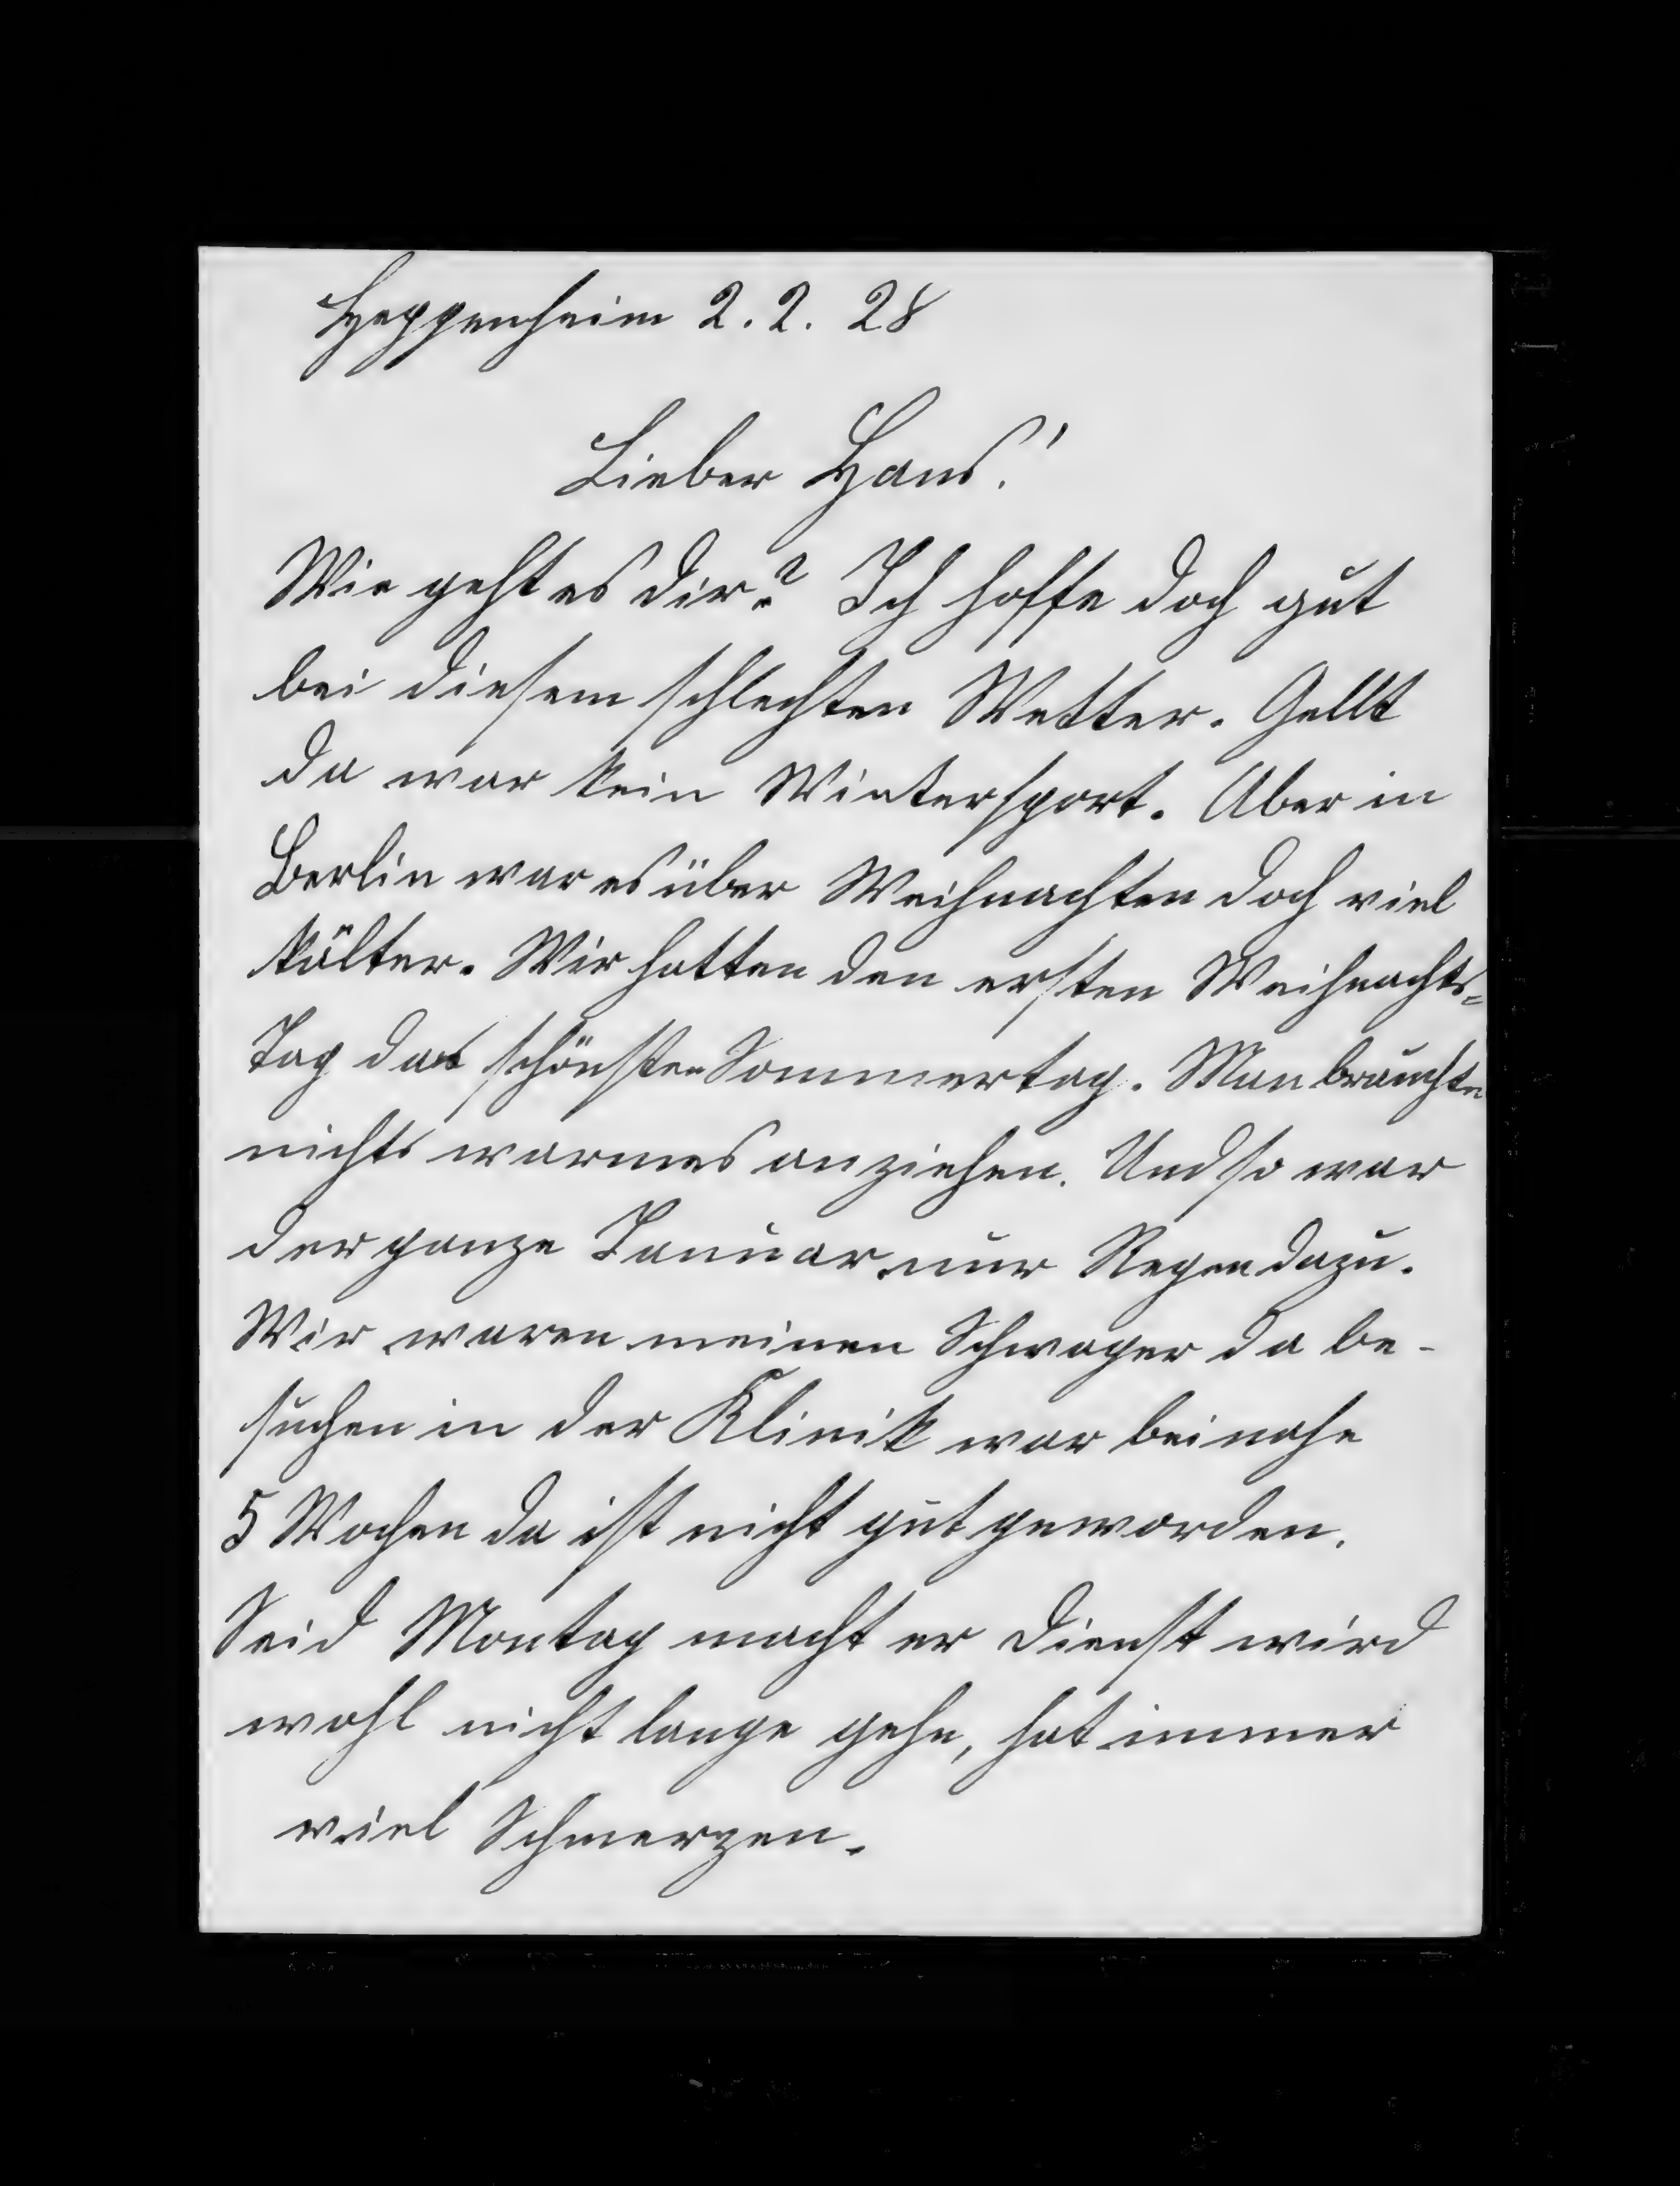 Heppenheim 2. 2. 28
Lieber Hans!
Wie geht es dir? Ich hoffe doch gut
bei diesem schlechten Wetter. Gellt
da war kein Wintersport. Aber in
Berlin war es über Weihnachten doch viel
kälter. Wir hatten den ersten Weihnachts=
Tag das schönsten Sommertag. Man brauchte
nichts warmes anziehen. Und so war
der ganze Januar nur Regen dazu.
Wir waren meinen Schwager da be-
suchen in der Klinik war beinahe
5 Wochen da ist nicht gut geworden.
Seid Montag macht er Dienst wird
wohl nicht lange gehe, hat immer
viel Schmerzen.